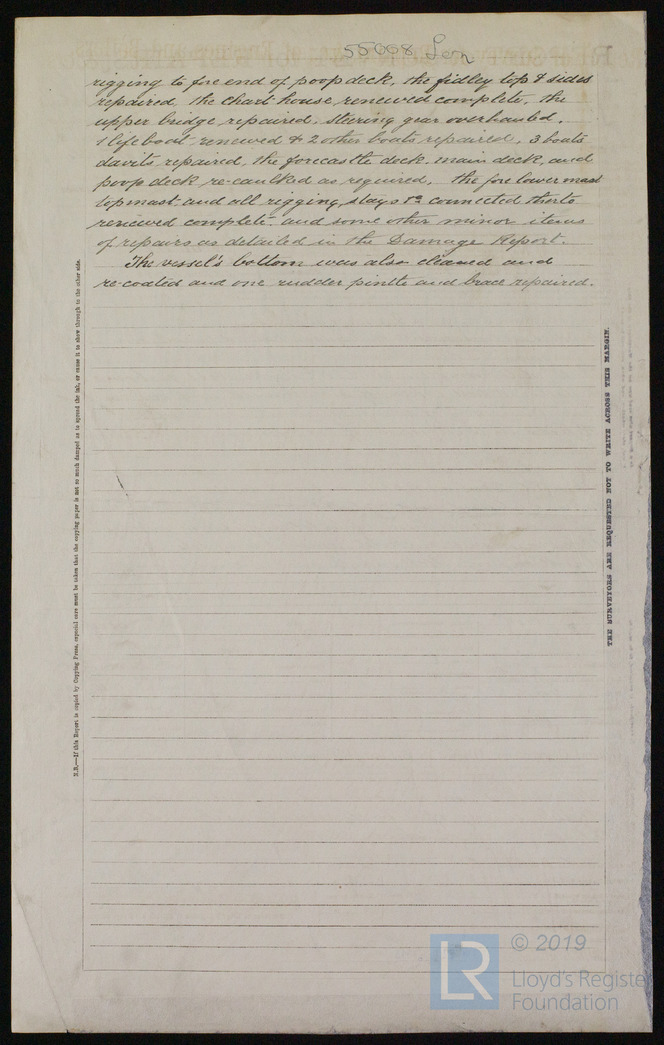 55668 Lon
rigging to fore end of poop deck, the fidley top & sides
repaired, the chart house renewed complete, the
upper bridge repaired, steering gear overhauled.
1 life boat renewed & 2 other boats repaired, 3 boats
davits repaired, the forecastle deck, main deck, and
poop deck re-caulked as required, the fore lower mast
topmast and all rigging, stays &c connected thereto
renewed complete and some other minor items
of repairs as detailed in the Damage Report.
The vessel's bottom was also cleaned and
re-coated and one rudder pintle and brace repaired.
N.B.—If this Report is copied by Copying Press, especial care must be taken that the copying paper is not so much damped as to spread the ink, or cause it to show through to the other side.
THE SURVEYORS ARE REQUESTED NOT TO WRITE ACROSS THIS MARGIN.
LR
© 2019
Lloyd's Register
Foundation